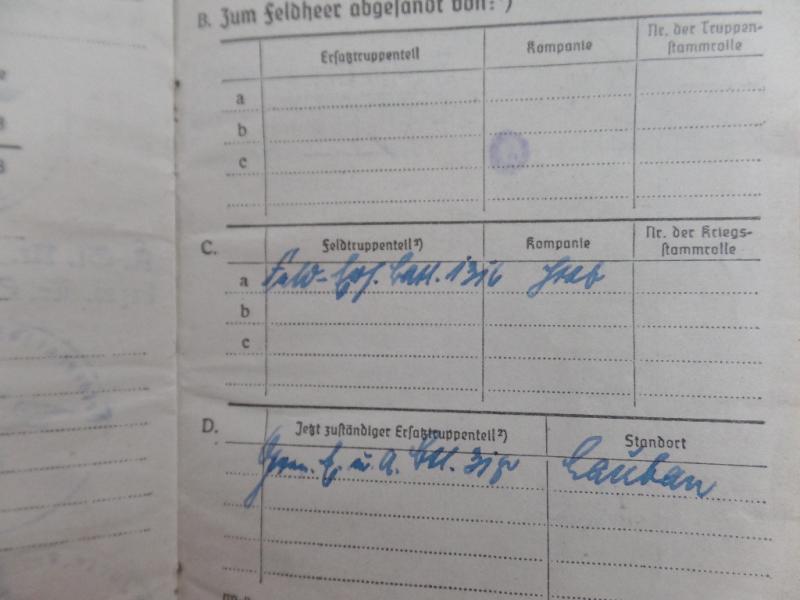 B. Zum Feldheer abgesandt von: ¹)
Ersatztruppenteil Kompanie Nr. der Truppen-
stammrolle
a
b
c
C. Feldtruppenteil²) Kompanie Nr. der Kriegs-
stammrolle
a Feld-Ers. Batl. Stab
b
c
D. Jetzt zuständiger Ersatztruppenteil²) Standort
Gren. E. u. A. Btl. Lauban